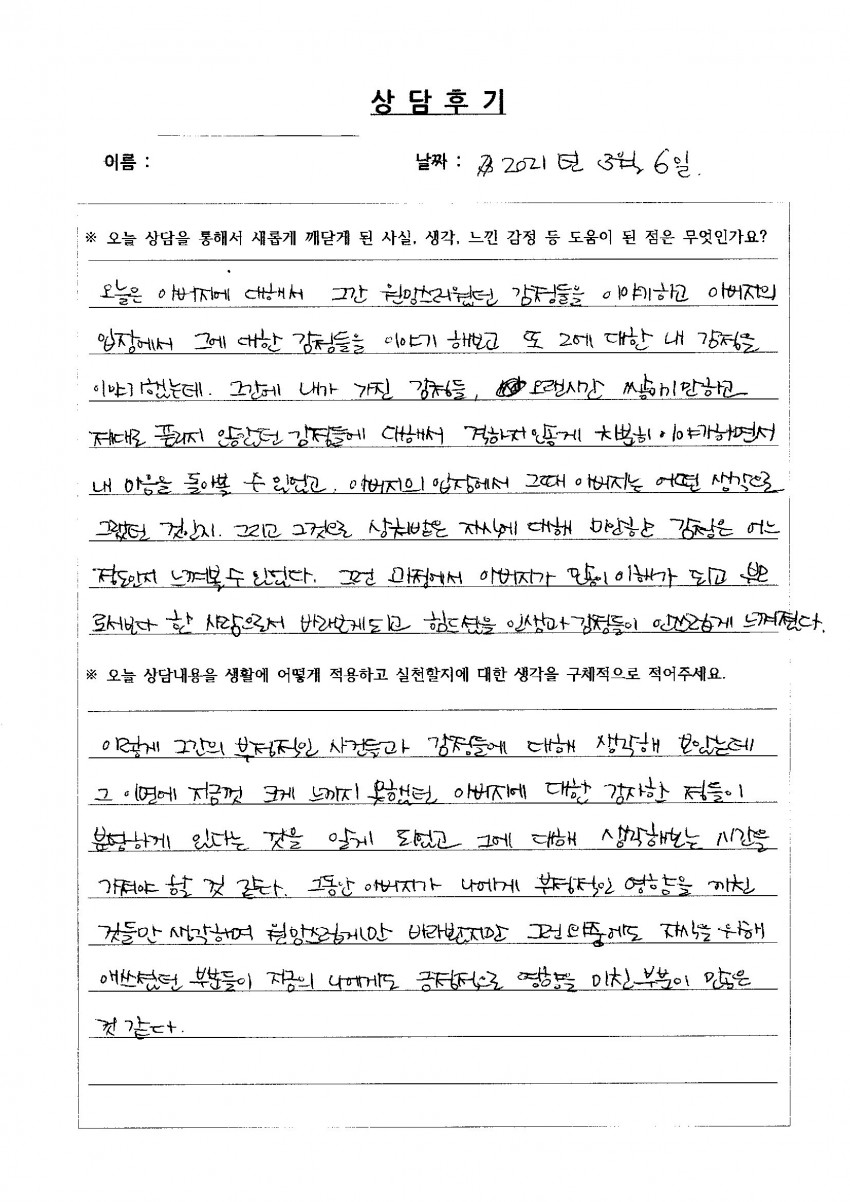 상 담 후 기
이름 :
날짜 : 2021년 3월 6일.
※ 오늘 상담을 통해서 새롭게 깨닫게 된 사실, 생각, 느낀 감정 등 도움이 된 점은 무엇인가요?
오늘은 아버지에 대해서 그간 원망스러웠던 감정들을 이야기하고 아버지의
입장에서 그에 대한 감정들을 이야기 해보고 또 그에 대한 내 감정을
이야기했는데. 그간에 내가 가진 감정들, 오랜시간 쌓이기만하고
제대로 풀리지 않았던 감정들에 대해서 격하지않게 차분히 이야기하면서
내 마음을 돌아볼 수 있었고. 아버지의 입장에서 그때 아버지는 어떤 생각으로
그랬던 것인지. 그리고 그것으로 상처받은 자식에 대해 미안한 감정은 어느
정도인지 느껴볼 수 있었다. 그런 과정에서 아버지가 많이 이해가 되고 부모
로서보다 한 사람으로서 바라보게되고 힘드셨을 인생과 감정들이 안쓰럽게 느껴졌다.
※ 오늘 상담내용을 생활에 어떻게 적용하고 실천할지에 대한 생각을 구체적으로 적어주세요.
이렇게 그간의 부정적인 사건들과 감정들에 대해 생각해 보았는데
그 이면에 지금껏 크게 느끼지 못했던 아버지에 대한 감사한 점들이
분명하게 있다는 것을 알게 되었고 그에 대해 생각해보는 시간을
가져야 할 것 같다. 그동안 아버지가 나에게 부정적인 영향을 끼친
것들만 생각하며 원망스럽게만 바라봤지만 그런 와중에도 자식을 위해
애쓰셨던 부분들이 지금의 나에게도 긍정적으로 영향을 미친 부분이 많은
것 같다.